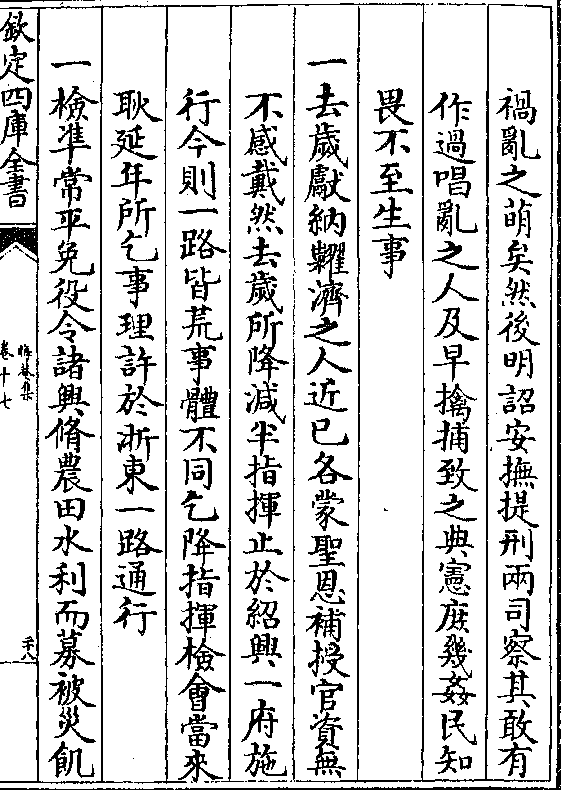 禍亂之萌矣然後明詔安撫提刑兩司察其敢有
作過唱亂之人及早擒捕致之典憲庶幾姦民知
畏不至生事
一去歲獻納糶濟之人近已各蒙聖恩補授官資無
不感戴然去歲所降減半指揮止於紹興一府施
行今則一路皆荒事體不同乞降指揮檢會當來
耿延年所乞事理許於浙東一路通行
一檢準常平免役令諸興脩農田水利而募被災飢
欽定四庫全書
晦菴集
卷十七
二十八